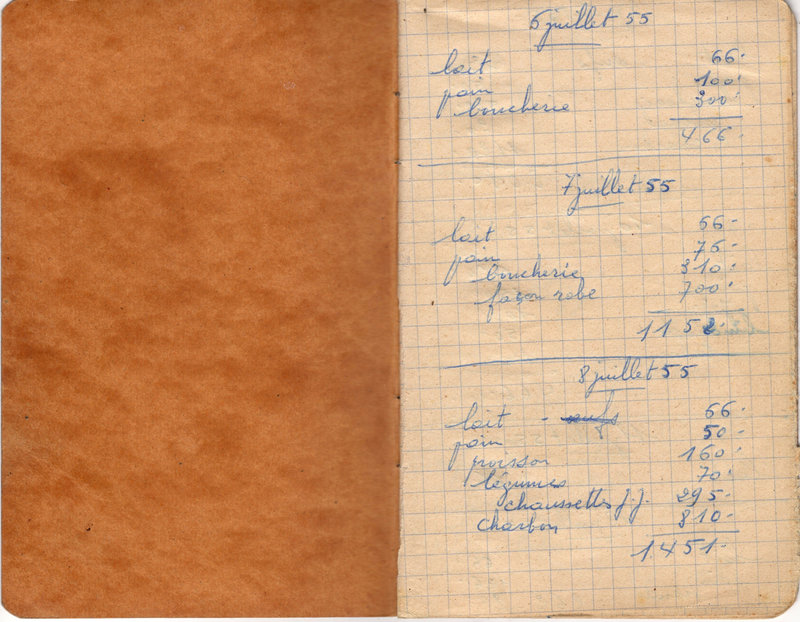 6 juillet 55
lait 66.-
pain 100.-
boucherie 300.-
466.-
7 juillet 55
lait 66.-
pain 76.-
boucherie 310.-
façon robe 700.-
1152.-
8 juillet 55
lait - 66.-
pain 50.-
poisson 160.-
légumes 70.-
chaussettes J.J. 295.-
charbon 810.-
1451.-